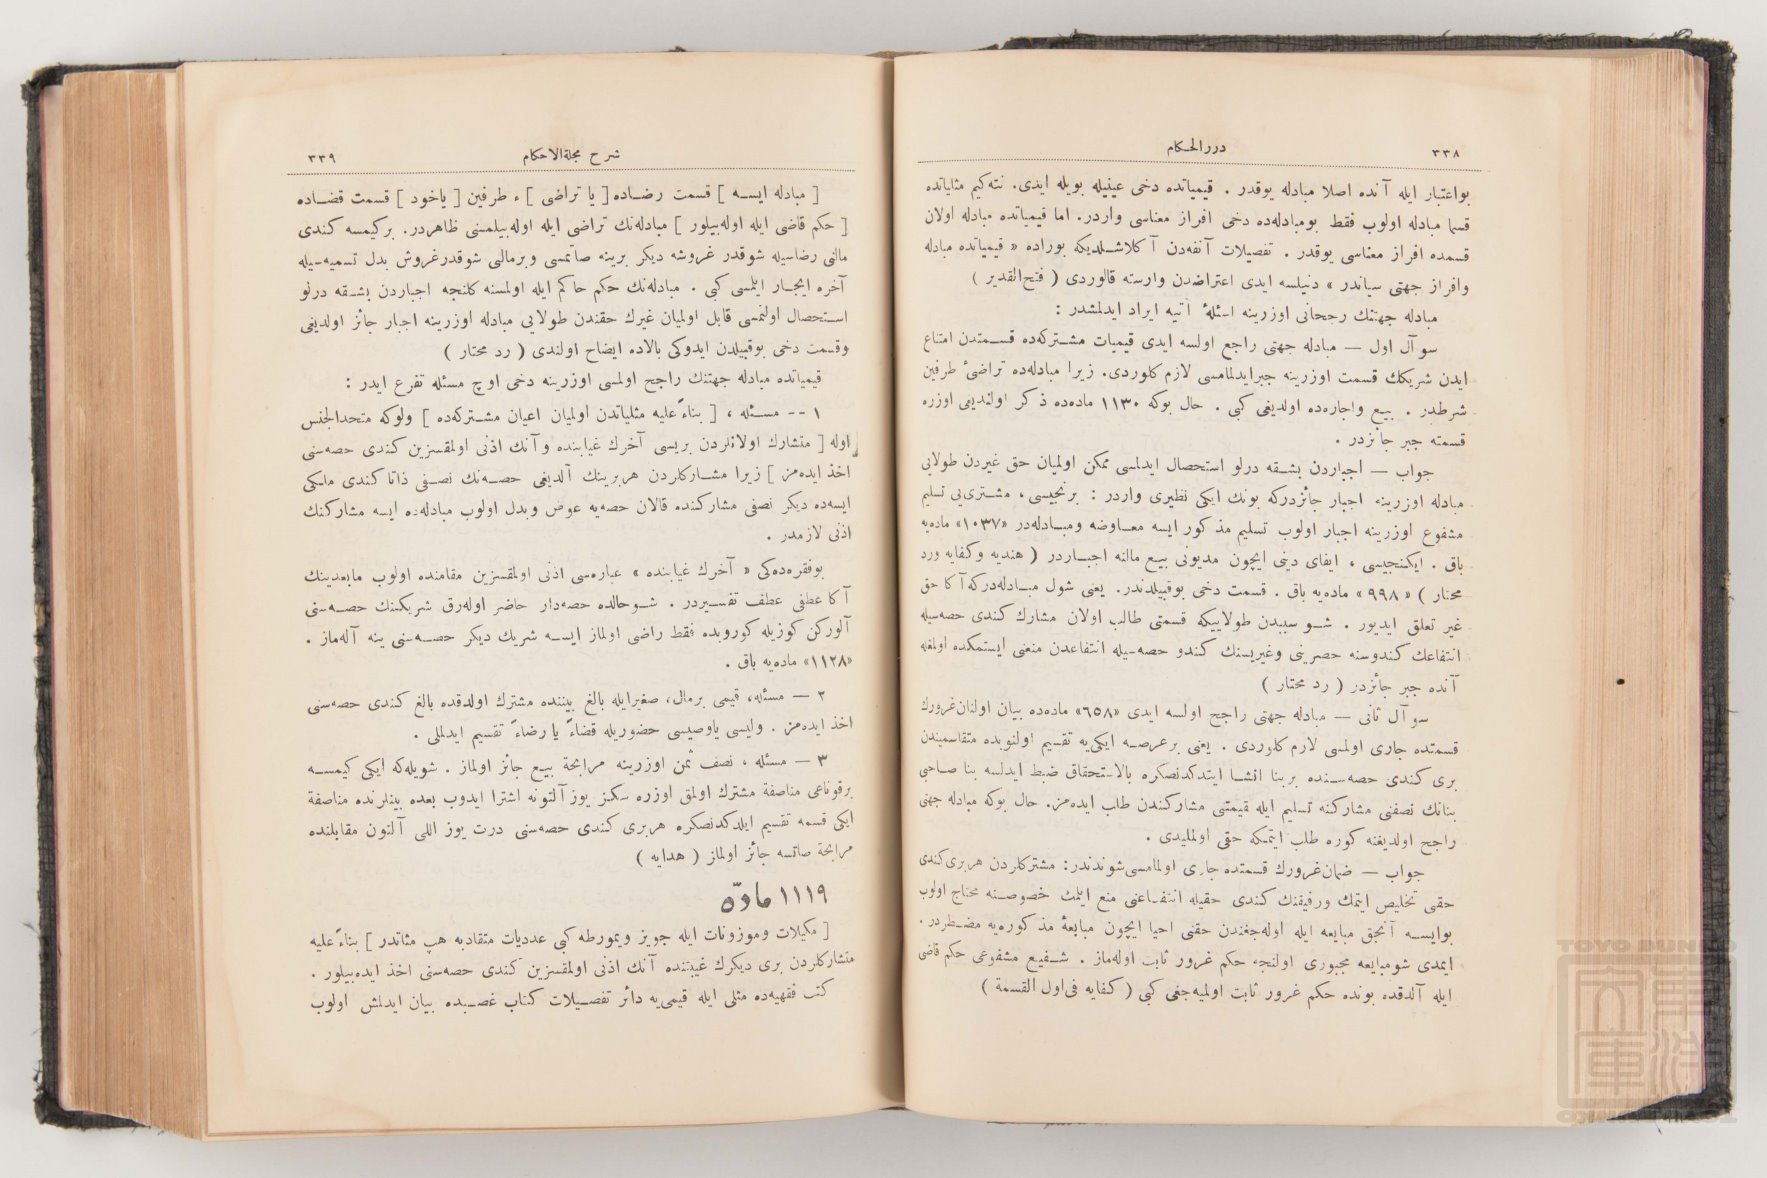 ٣٣٨
دررالحكام
بواعتبار ايله آنده اصلا مبادله يوقدر . قيمياتده دخى عينيله بويله ايدى. نته‌كيم مثلياتده
قسما مبادله اولوب فقط بومبادله‌ده دخى افراز معناسى واردر. اما قيمياتده مبادله اولان
قسمده افراز معناسى يوقدر . تفصيلات آنفه‌دن آ كلاشلديكه بوراده « قيمياتده مبادله
وافراز جهتى سياندر » دنيلسه ايدى اعتراضدن وارسته قالوردى ( فتح‌القدير )
مبادله جهتنك رجحانى اوزرينه اسئلهٔ آتيه ايراد ايدلمشدر :
سوآل اول — مبادله جهتى راجع اولسه ايدى قيميات مشتركه‌ده قسمتدن امتناع
ايدن شريكك قسمت اوزرينه جبرايدلمامسى لازم كلوردى. زيرا مبادله‌ده تراضىٔ طرفين
شرطدر . بيع واجاره‌ده اولديغى كبى . حال بوكه ١١٣٠ ماده‌ده ذكر اولنديغى اوزره
قسمته جبر جائزدر .
جواب — اجباردن بشقه درلو استحصال ايدلمسى ممكن اولميان حق غيردن طولايى
مبادله اوزرينه اجبار جائزدركه بونك ايكى نظيرى واردر : برنجيسى ، مشترى‌يى تسليم
مشفوع اوزرينه اجبار اولوب تسليم مذكور ايسه معاوضه ومبادله‌در «١٠٣٧» ماده‌يه
باق . ايكنجيسى ، ايفاى دينى ايچون مديونى بيع مالنه اجباردر ( هنديه وكفايه ورد
محتار ) « ٩٩٨ » ماده‌يه باق . قسمت دخى بوقبيلدندر. يعنى شول مبادله‌دركه آ كا حق
غير تعلق ايديور . شو سببدن طولاييكه قسمتى طالب اولان مشارك كندى حصه‌سيله
انتفاعك كندوسنه حصرينى وغيريسنك كندو حصه‌سيله انتفاعدن منعنى ايستمكده اولمغله
آنده جبر جائزدر ( رد محتار )
سوآل ثانى — مبادله جهتى راجح اولسه ايدى «٦٥٨» ماده‌ده بيان اولنان‌غرورك
قسمتده جارى اولمسى لازم كلوردى . يعنى برعرصه ايكى‌يه تقسيم اولنوبده متقاسميندن
برى كندى حصه‌سنده بر بنا انشا ايتدكدنصكره بالاستحقاق ضبط ايدلسه بنا صاحبى
بنانك نصفنى مشاركنه تسليم ايله قيمتنى مشاركندن طلب ايده‌مز. حال بوكه مبادله جهتى
راجح اولديغنه كوره طلب ايتمكه حقى اولمليدى .
جواب — ضمان‌غرورك قسمتده جارى اولمامسى‌شوندندر: مشتركلردن هربرى‌كندى
حقنى تخليص ايتمك ورفيقنك كندى حقيله انتفاعنى منع ايلمك خصوصنه محتاج اولوب
بوايسه آنجق مبايعه ايله اوله‌جغندن حقنى احيا ايچون مبايعهٔ مذكوره‌يه مضطردر .
ايمدى شومبايعه مجبورى اولنجه حكم غرور ثابت اوله‌ماز . شفيع مشفوعى حكم قاضى
ايله آلدقده بونده حكم غرور ثابت اولميه‌جغى كبى ( كفايه فى‌اول القسمة )
شرح مجلةالاحكام
٣٣٩
[ مبادله ايسه ] قسمت رضاده [ يا تراضى ] ء طرفين [ ياخود ] قسمت قضاده
[ حكم قاضى ايله اوله‌بيلور ] مبادله‌نك تراضى ايله اوله‌بيلمسى ظاهردر. بركيمسه كندى
مالنى رضاسيله شوقدر غروشه ديكر برينه صاتمسى وبرمالى شوقدرغروش بدل تسميه‌سيله
آخره ايجار ايلمسى كبى . مبادله‌نك حكم حاكم ايله اولمسنه كلنجه اجباردن بشقه درلو
استحصال اولنمسى قابل اولميان غيرك حقندن طولايى مبادله اوزرينه اجبار جائز اولديغى
وقسمت دخى بوقبيلدن ايدوكى بالاده ايضاح اولندى ( رد محتار )
قيمياتده مبادله جهتنك راجح اولمسى اوزرينه دخى اوچ مسئله تفرع ايدر :
١ -- مسئله ، [ بناءً عليه مثلياتدن اولميان اعيان مشتركه‌ده ] ولوكه متحدالجنس
اوله [ متشارك اولانلردن بريسى آخرك غيابنده وآنك اذنى اولمقسزين كندى حصه‌سنى
اخذ ايده‌مز ] زيرا مشاركلردن هربرينك آلديغى حصه‌نك نصفى ذاتا كندى ملكى
ايسه‌ده ديكر نصفى مشاركنده قالان حصه‌يه عوض وبدل اولوب مبادله‌ده ايسه مشاركنك
اذنى لازمدر .
بوفقره‌ده‌كى « آخرك غيابنده » عباره‌سى اذنى اولمقسزين مقامنده اولوب مابعدينك
آ كا عطفى عطف تفسيردر . شوحالده حصه‌دار حاضر اوله‌رق شريكنك حصه‌سنى
آلوركن كوزيله كوروبده فقط راضى اولماز ايسه شريك ديكر حصه‌سنى ينه آله‌ماز .
«١١٢٨» ماده‌يه باق .
٢ — مسئله، قيمى برمال، صغيرايله بالغ بيننده مشترك اولدقده بالغ كندى حصه‌سنى
اخذ ايده‌مز . وليسى ياوصيسى حضوريله قضاءً يا رضاءً تقسيم ايدلملى .
٣ — مسئله ، نصف ثمن اوزرينه مرابحة بيع جائز اولماز . شويله‌كه ايكى كيمسه
برقوناغى مناصفة مشترك اولمق اوزره سكز يوز آلتونه اشترا ايدوب بعده بينلرنده مناصفة
ايكى قسمه تقسيم ايلدكدنصكره هربرى كندى حصه‌سنى درت يوز اللى آلتون مقابلنده
مرابحة صاتسه جائز اولماز ( هدايه )
١١١٩ مادّه
[ مكيلات وموزونات ايله جويز ويمورطه كبى عدديات متقاربه هپ مثلتدر ] بناءً عليه
متشاركلردن برى ديكرك غيبتنده آنك اذنى اولمقسزين كندى حصه‌سنى اخذ ايده‌بيلور .
كتب فقهيه‌ده مثلى ايله قيمى‌يه دائر تفصيلات كتاب غصبده بيان ايدلمش اولوب
TOYO BUNKO